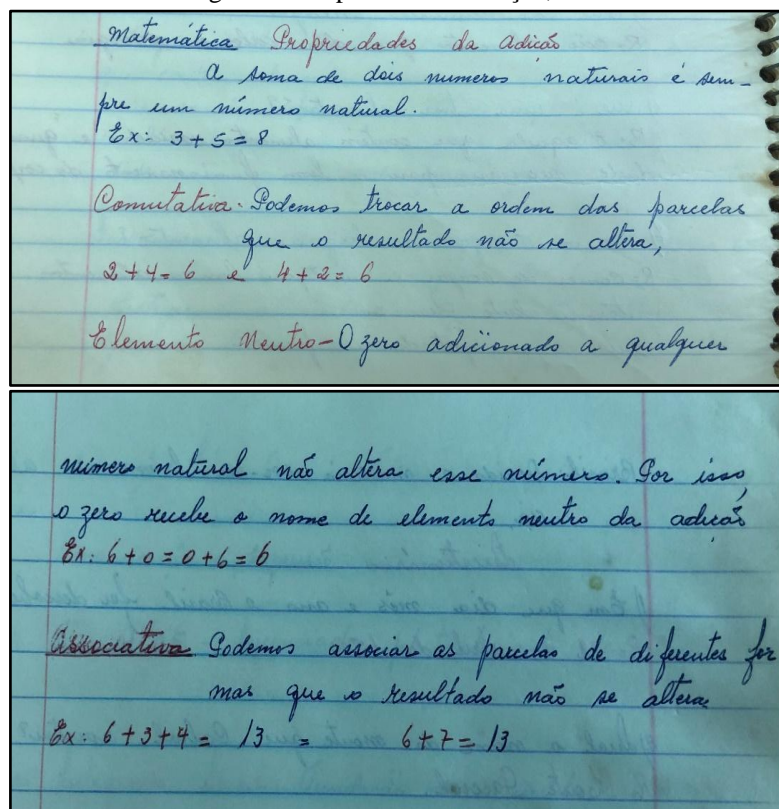 Matemática Propriedades da Adicão
A soma de dois numeros naturais é sem-
pre um número natural.
Ex: 3 + 5 = 8
Comutativa - Podemos trocar a ordem das parcelas
que o resultado não se altera,
2 + 4 = 6 e 4 + 2 = 6
Elemento Neutro - O zero adicionado a qualquer
número natural não altera esse número. Por isso,
o zero recebe o nome de elemento neutro da adicão
Ex: 6 + 0 = 0 + 6 = 6
Associativa Podemos associar as parcelas de diferentes for
mas que o resultado não se altera
Ex: 6 + 3 + 4 = 13 = 6 + 7 = 13